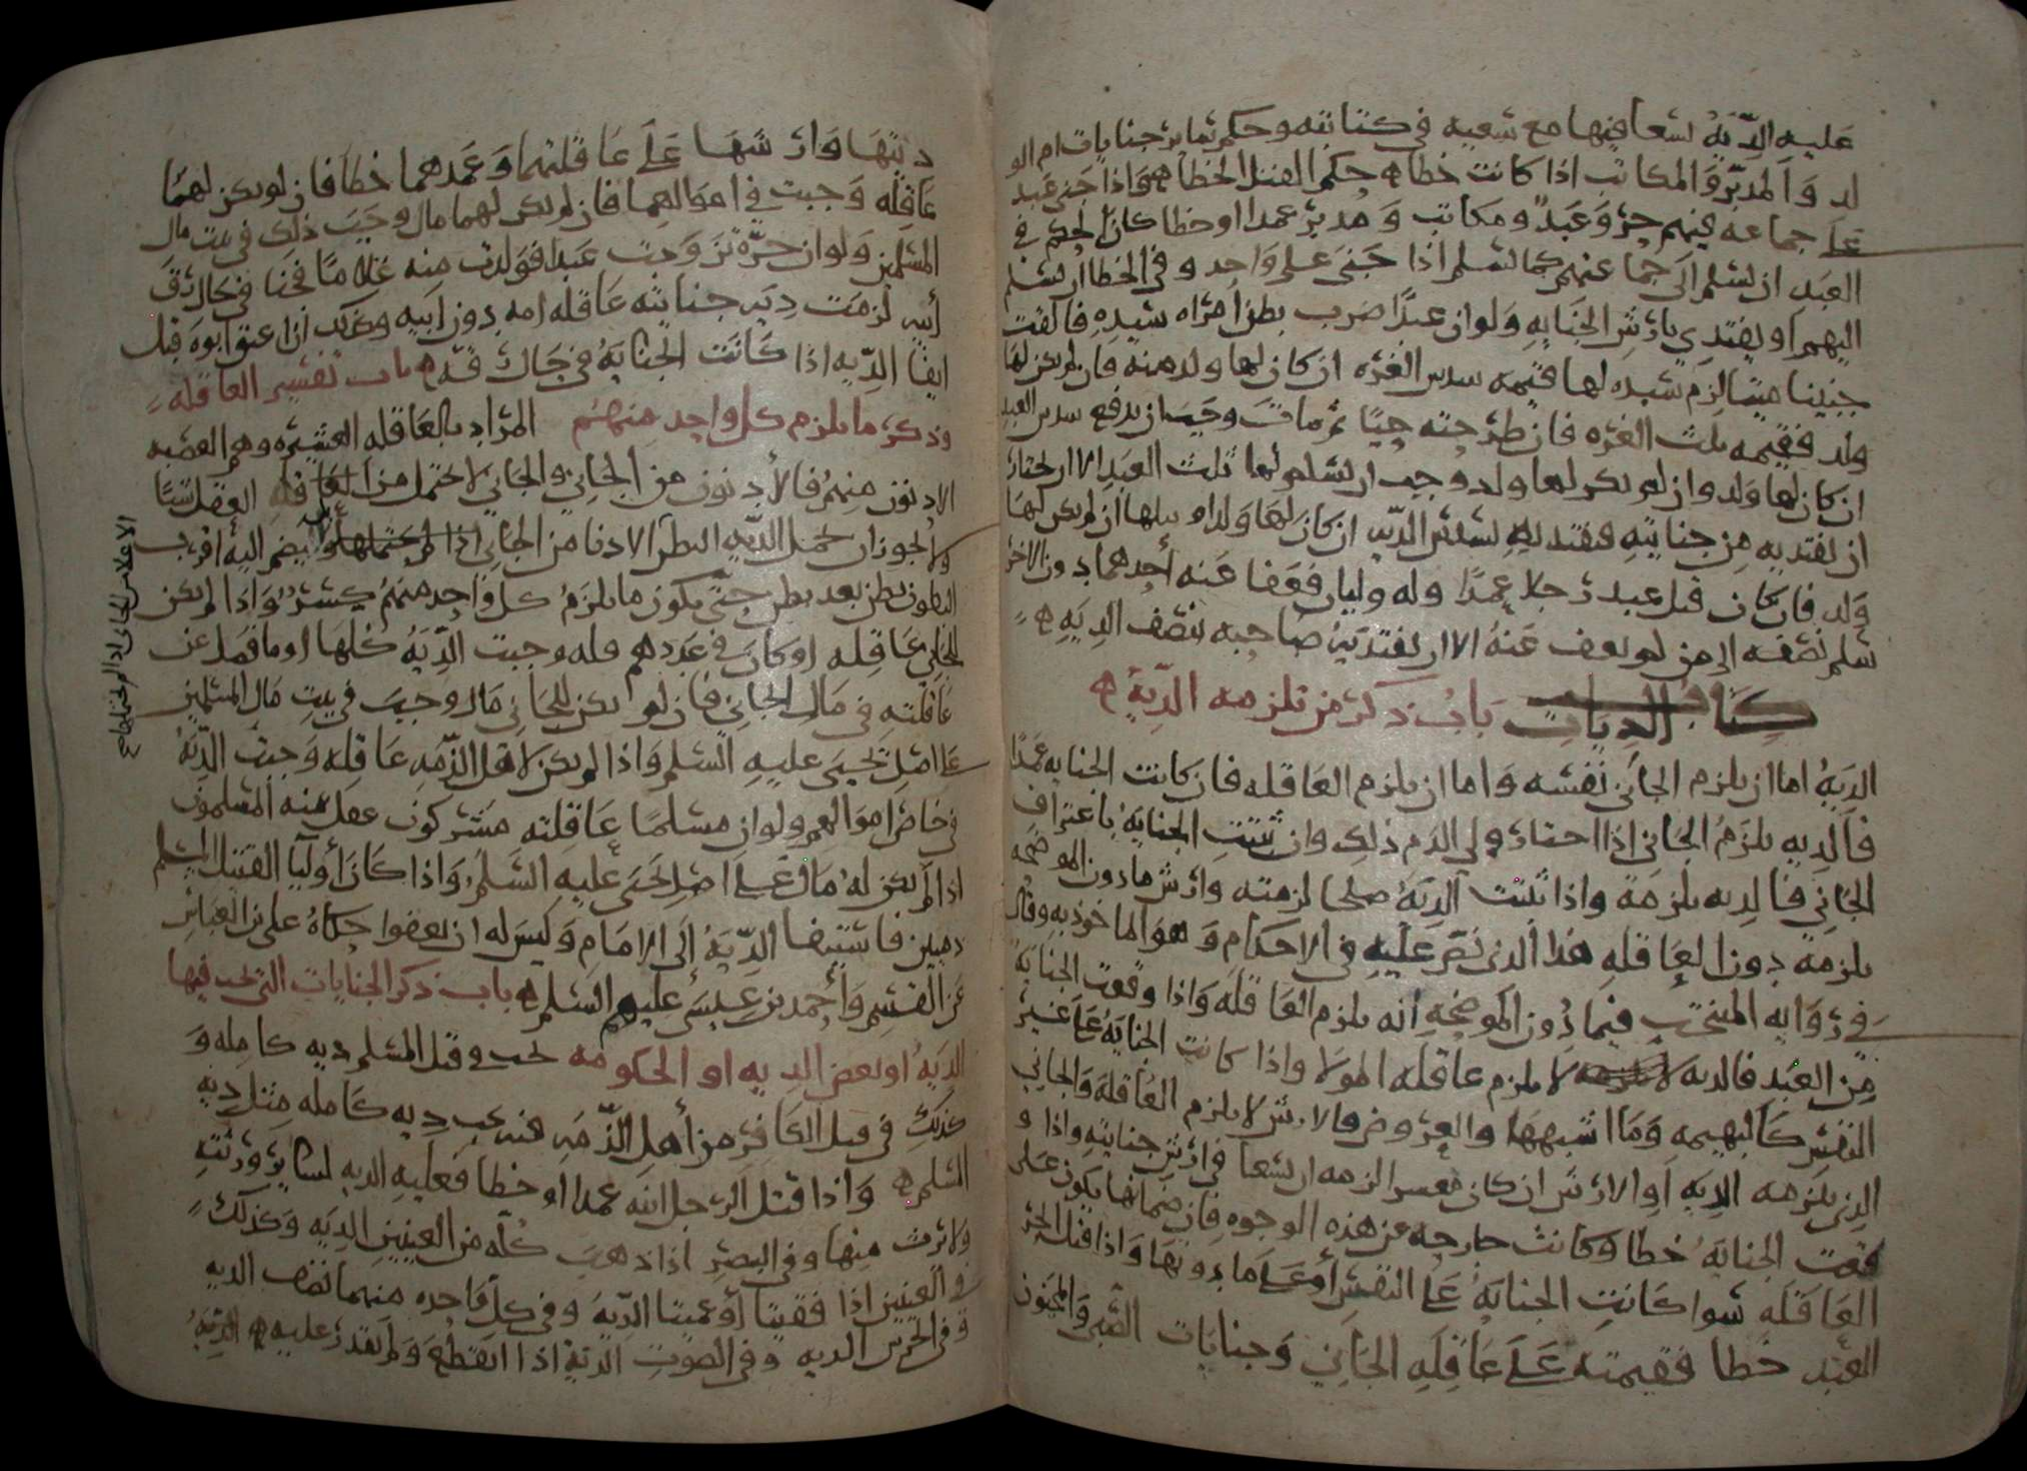 عليه الدية لسعا فيها مع سعيه في كتابته وحكم سائر جنايات ام الو
لد والمدبر والمكاتب اذا كانت خطا حكم القتل الخطا واذا جنى عبد
على جماعه فيهم حر وعبد ومكاتب ومدبر عمدا او خطا كان الحكم في
العبد ان يسلم الى جماعتهم كما يسلم اذا جنى على واحد وفي الخطا ان يسلم
اليهم او يفتدي بارش الجنايه ولو ان عبدا ضرب بطن امراه سيده فالقت
جنينا ميتا لزم سيده لها قيمه سدس الغره ان كان لها ولد منه فان لم يكن لها
ولد فقيمه ثلث الغره فان طرحته حيا ثم مات وجب ان يدفع سدس العبد
ان كان لها ولد وان لم يكن لها ولد وجب ان يسلم لها ثلث العبد الا ان يختار
ان يفتديه من جنايته فيفتديه بسدس الديه ان كان لها ولد او بثلثها ان لم يكن لها
ولد فان كان قتل عبد رجلا عمدا وله وليان فعفا عنه احدهما دون الاخر
سلم نصفه الى من لم يعف عنه الا ان يفتديه صاحبه بنصف الديه
كتاب الديات باب ذكر من تلزمه الدية
الدية اما ان يلزم الجاني نفسه واما ان يلزم العاقله فان كانت الجنايه عمدا
فالديه يلزم الجاني اذا اختار ولي الدم ذلك وان ثبتت الجنايه باعتراف
الجاني فالديه يلزمه واذا ثبتت الدية صلحا لزمته وارش مادون الموضحه
يلزمه دون العاقله هذا الذي نص عليه في الاحكام وهو الماخوذ به وقال
في روايه المنتخب فيما دون الموضحه انه يلزم العاقله واذا وقعت الجناية
من العبد فالديه لا يلزم عاقله المولا واذا كانت الجنايه على غير
النفس كالبهيمه وما اشبهها والعروض فالارش لا يلزم العاقله والجاني
الذي يلزمه الديه او الارش ان كان معسرا لزمه ان يسعا في ارش جنايته واذا و
قعت الجناية خطا وكانت خارجه عن هذه الوجوه فان ضمانها يكون على
العاقله سوا كانت الجناية على النفس او على ما دونها واذا قتل الحر
العبد خطا فقيمته على عاقله الجاني وجنايات الصبي والمجنون
ديتها وارشها على عاقلتهما وعمدهما خطا فان لم يكن لهما
عاقله وجبت في اموالهما فان لم يكن لهما مال وجب ذلك في بيت مال
المسلمين ولو ان حره تزوجت عبدا فولدت منه غلاما فجنا في حال رق
ابيه لزمت ديه جنايته عاقله امه دون ابيه وكذلك ان اعتق ابوه قبل
ايفا الديه اذا كانت الجنايه في حال رقه باب تفسير العاقله
وذكر ما يلزم كل واحد منهم المراد بالعاقله العشيره وهم العصبه
الادنون منهم فالادنون من الجاني والجاني لا يحتمل من العاقله العقل شيا
ولا يجوز ان يحمل الديه البطن الادنا من الجاني يضم اليه اقرب
البطون بطن بعد بطن حتى يكون ما يلزم كل واحد منهم واذا لم يكن
للجاني عاقله او كان في عددهم قله وجبت الدية كلها او ما فضل عن
عاقلته في مال الجاني فان لم يكن للجاني مال وجب في بيت مال المسلمين
على اصل يحيى عليه السلم واذا لم يكن لاهل الذمه عاقله وجبت الدية
في خاص اموالهم ولو ان مسلما عاقلته مشركون عقل عنه المسلمون
اذا لم يكن له مال على اصل يحيى عليه السلم واذا كان اوليا القتيل المسلم
ذميين فاستيفا الدية الى الامام وليس له ان يعفوا حكاه علي بن العباس
عن القسم واحمد بن عيسى عليهم السلم باب ذكر الجنايات التي تجب فيها
الدية او بعض الديه او الحكومه تجب في قتل المسلم ديه كامله و
كذلك في قتل الكافر من اهل الذمه فيه تجب ديه كامله مثل ديه
المسلم واذا قتل الرجل ابنه عمدا او خطا فعليه الديه لسائر ورثته
ولا يرث منها وفي البصر اذا ذهب كله من العينين الديه وكذلك
في العينين اذا فقيتا او عميتا الدية وفي كل واحده منهما نصف الديه
وفي الخرس الديه وفي الصوت الدية اذا انقطع ولم يقدر عليه الدية